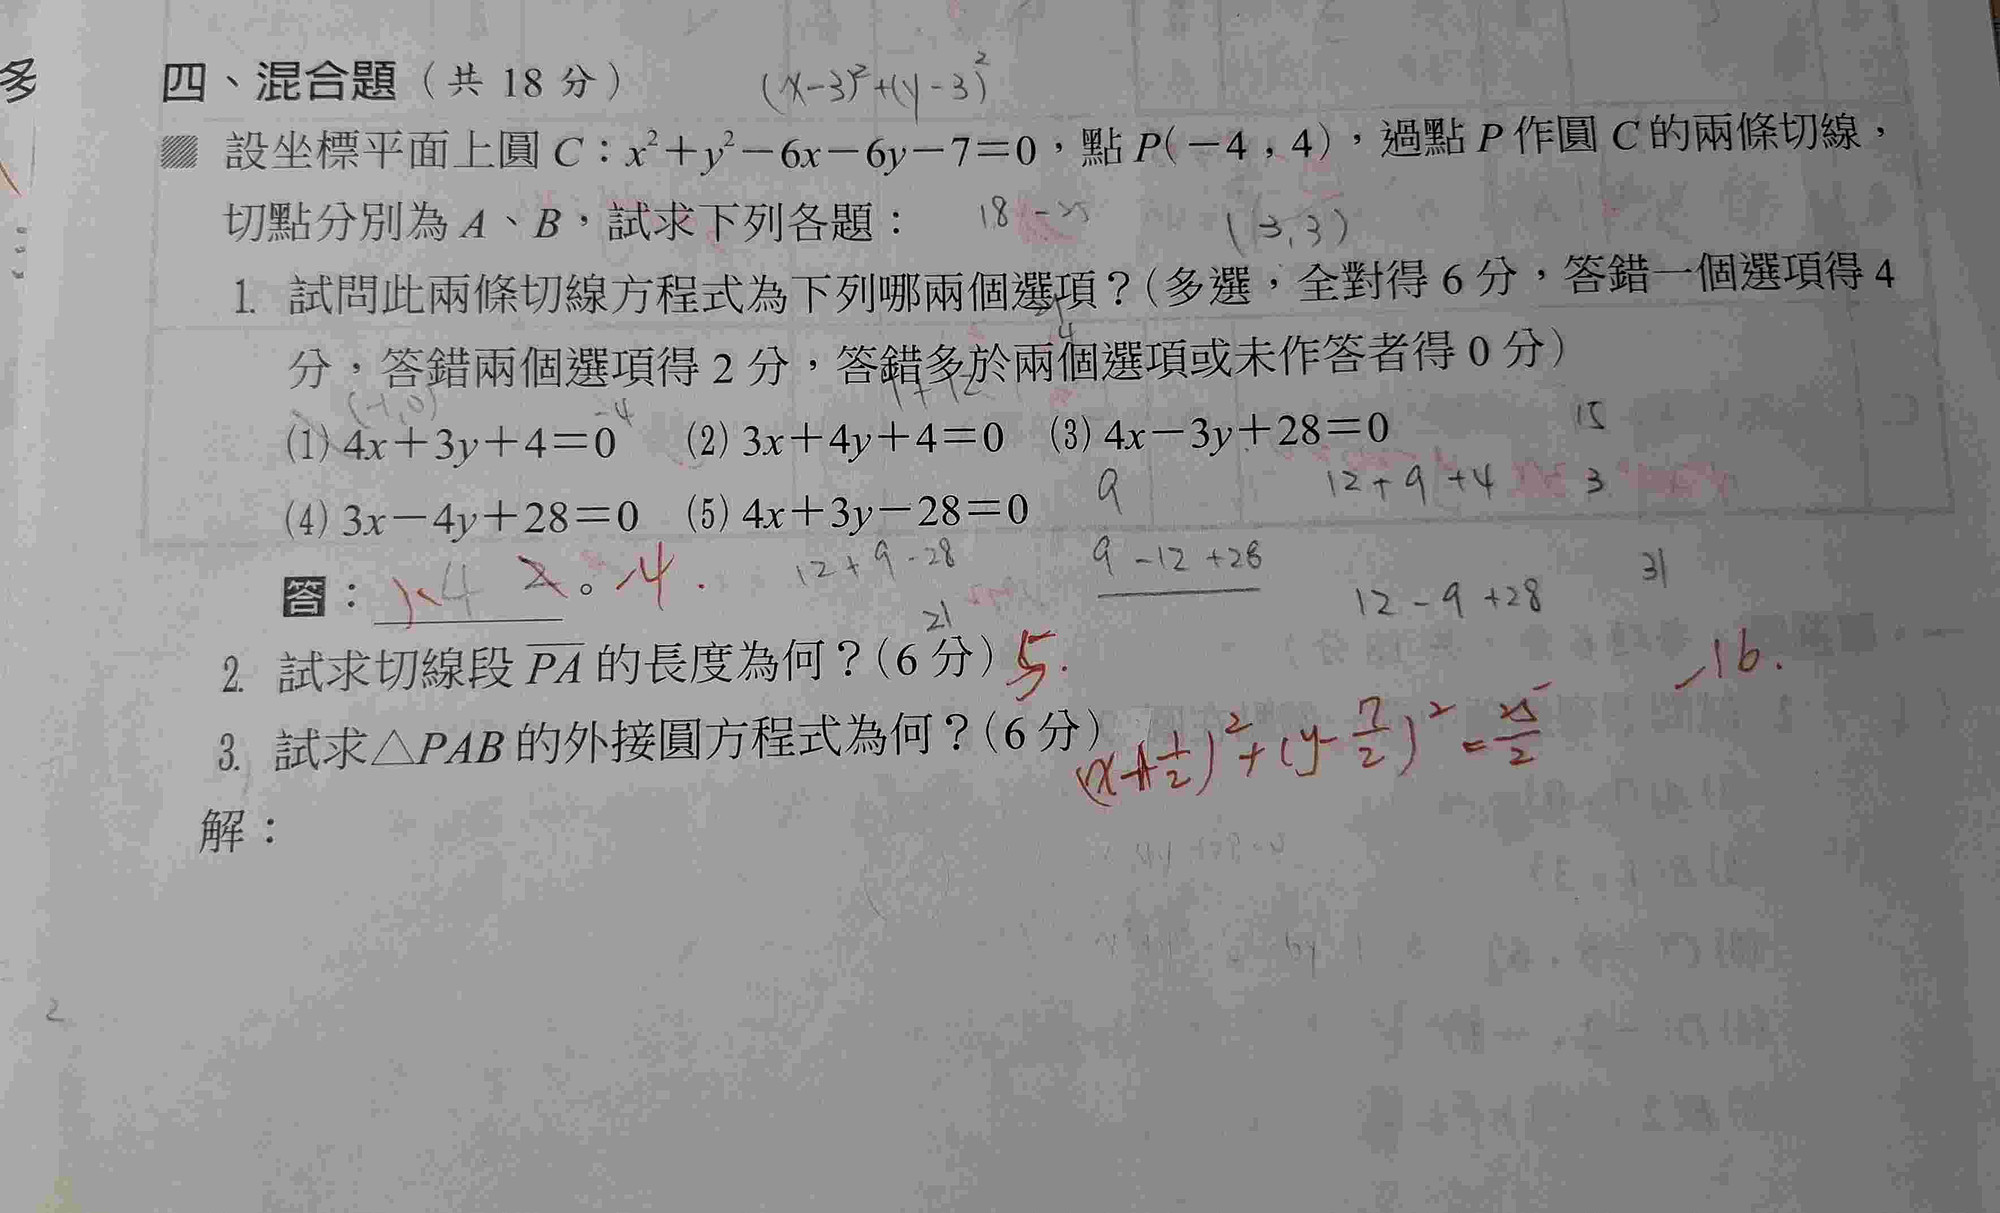 多
四、混合題（共 18 分） (x-3)²+(y-3)²
▨ 設坐標平面上圓 C：x²＋y²－6x－6y－7＝0，點 P(－4，4)，過點 P 作圓 C 的兩條切線，
切點分別為 A、B，試求下列各題： 18 -25 (3,3)
1. 試問此兩條切線方程式為下列哪兩個選項？（多選，全對得 6 分，答錯一個選項得 4
分，答錯兩個選項得 2 分，答錯多於兩個選項或未作答者得 0 分）
(-1,0) -4
(1) 4x＋3y＋4＝0 (2) 3x＋4y＋4＝0 (3) 4x－3y＋28＝0 15
9 12+9+4 3
(4) 3x－4y＋28＝0 (5) 4x＋3y－28＝0
12+9-28 9-12+28 12-9+28 31
答：
21
2. 試求切線段 PA 的長度為何？（6 分） 5. 16.
3. 試求△PAB 的外接圓方程式為何？（6 分） (x+1/2)²+(y-7/2)²=25/2
解：
2